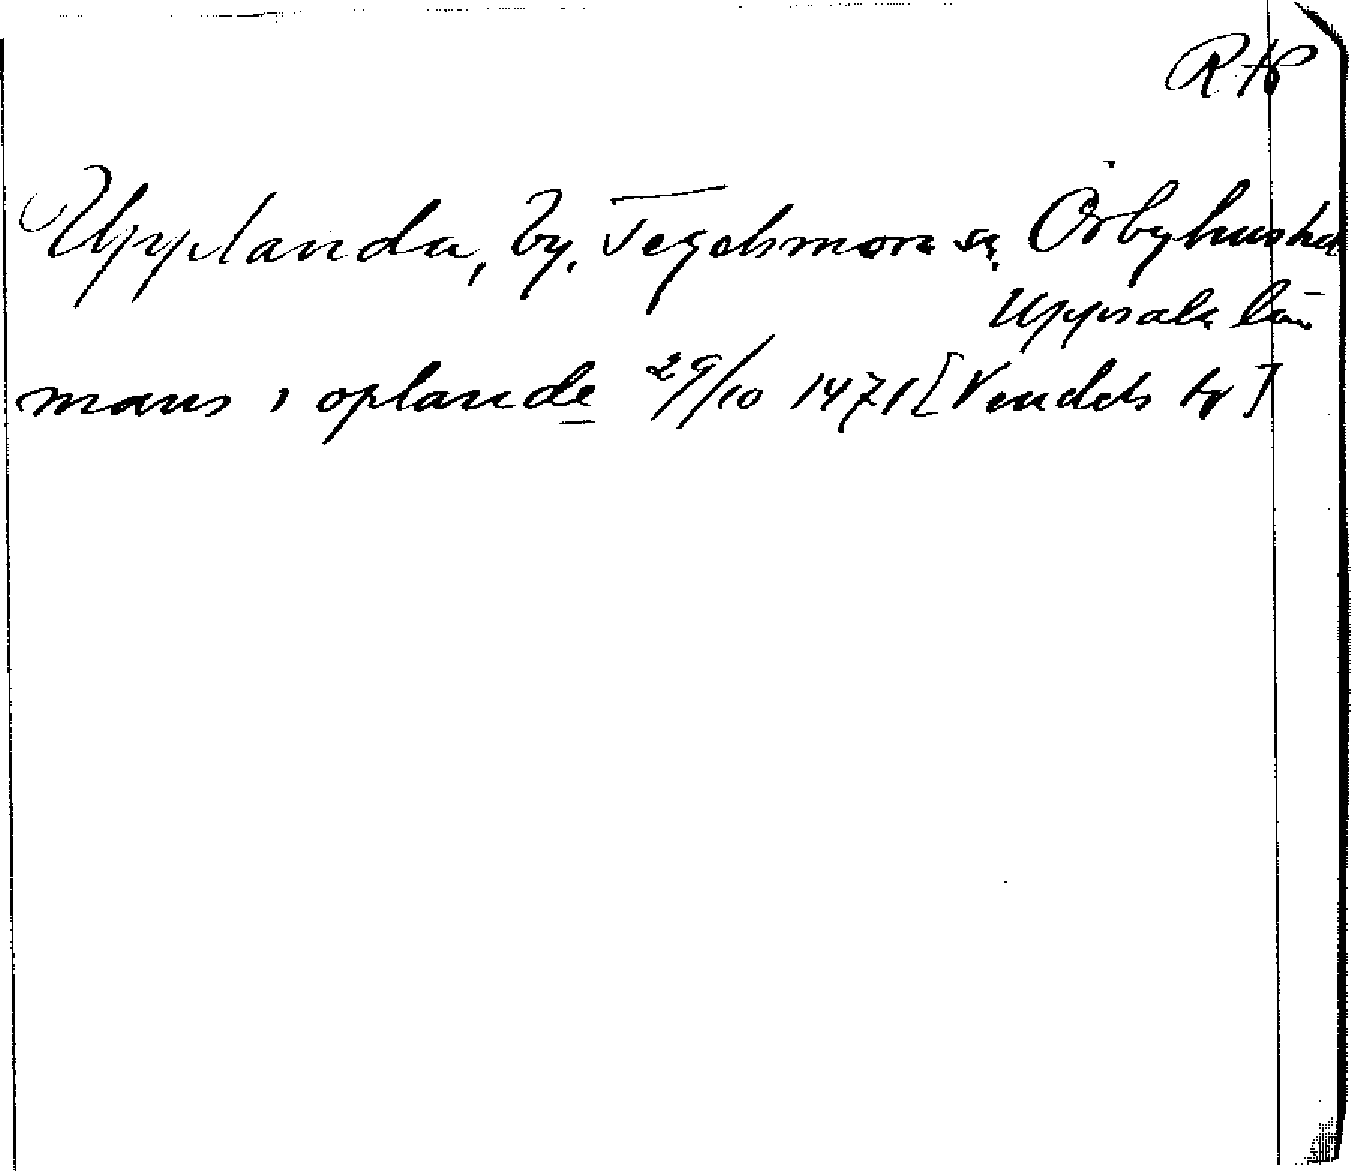 RAp
Upplanda, by, Tegelsmora sn, Örbyhus hd
Uppsala län
mans i oplande 29/10 1471 [Vendels tr]